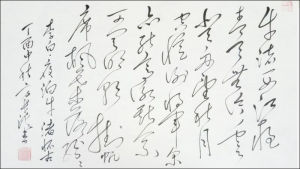 牛渚西江夜
青天無片雲
登舟望秋月
空憶謝將軍余
亦能高詠斯人
不可聞明朝挂帆
席楓葉落紛紛
李白夜泊牛渚懷古
丁酉中秋